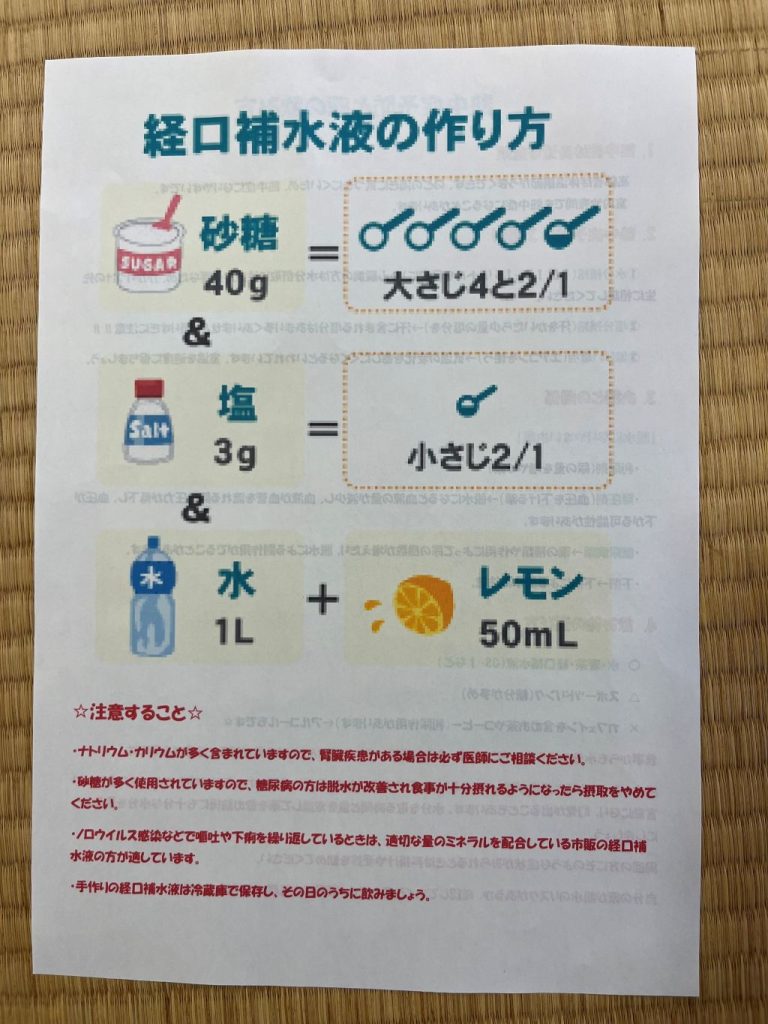 経口補水液の作り方
SUGAR
砂糖
40g
=
大さじ4と2/1
&
Salt
塩
3g
=
小さじ2/1
&
水
水
1L
+
レモン
50mL
☆注意すること☆
・ナトリウム・カリウムが多く含まれていますので、腎臓疾患がある場合は必ず医師にご相談ください。
・砂糖が多く使用されていますので、糖尿病の方は脱水が改善され食事が十分摂れるようになったら摂取をやめて
ください。
・ノロウイルス感染などで嘔吐や下痢を繰り返しているときは、適切な量のミネラルを配合している市販の経口補
水液の方が適しています。
・手作りの経口補水液は冷蔵庫で保存し、その日のうちに飲みましょう。